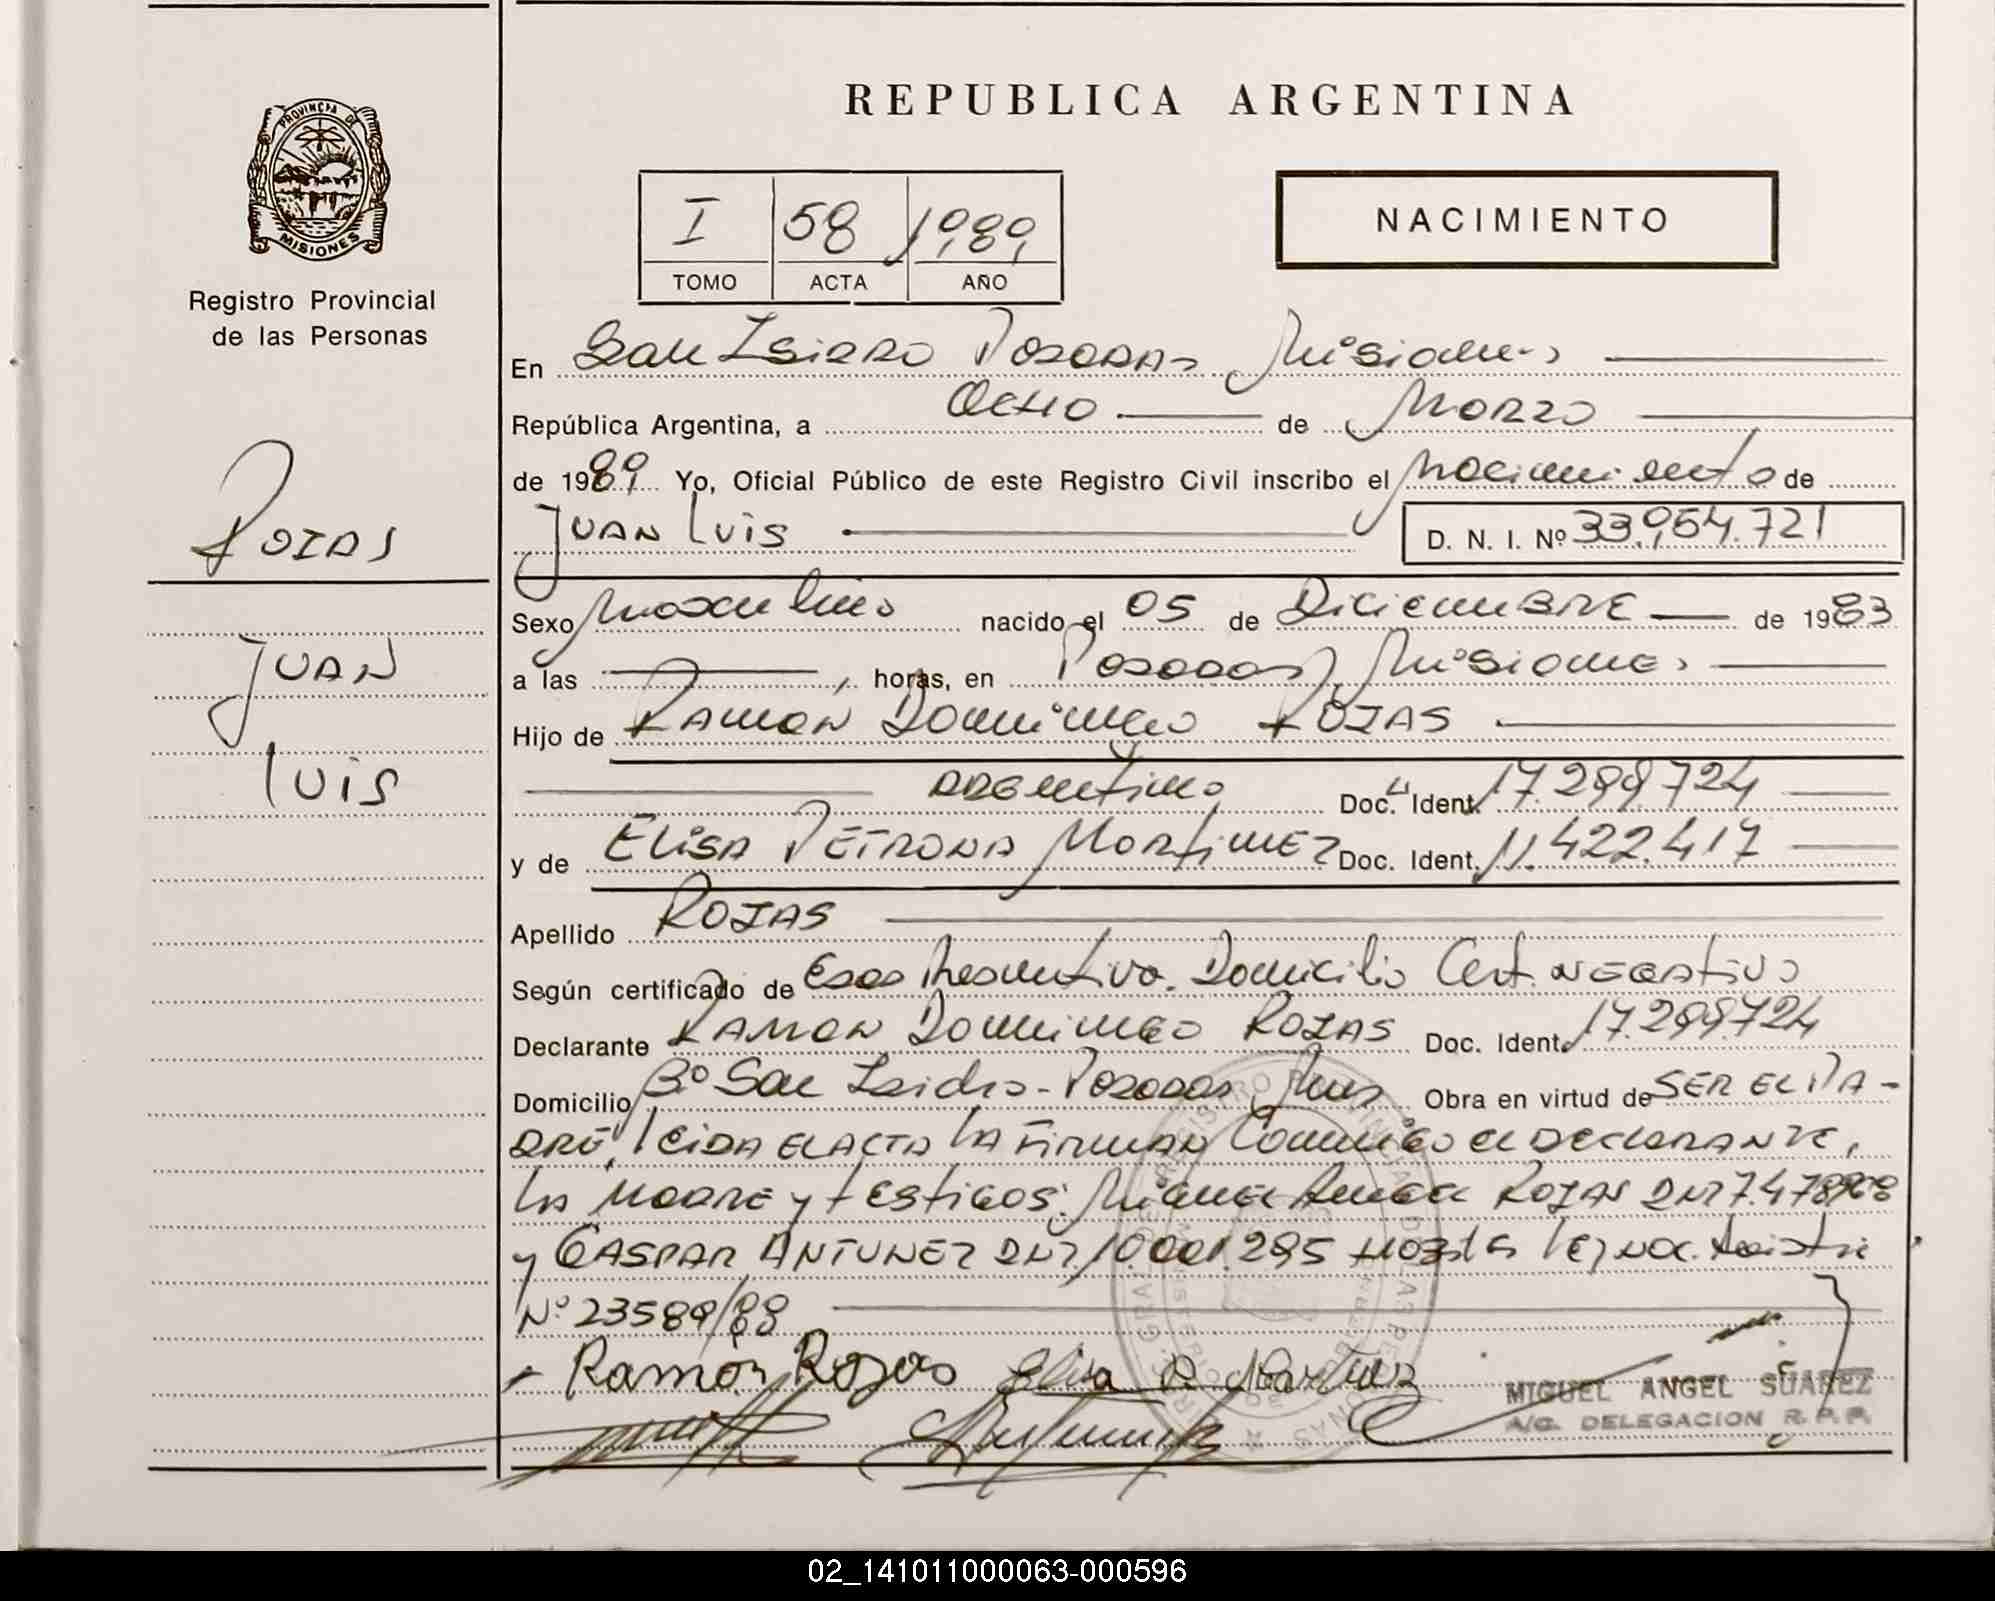 REPUBLICA ARGENTINA
PROVINCIA DE
MISIONES
Registro Provincial
de las Personas
I 58 1989
TOMO ACTA AÑO
NACIMIENTO
ROJAS
JUAN
LUIS
En San Isidro Posadas Misiones
República Argentina, a Ocho de Marzo
de 1989 Yo, Oficial Público de este Registro Civil inscribo el nacimiento de
JUAN LUIS D. N. I. Nº 33.964.721
Sexo masculino nacido el 05 de Diciembre de 1983
a las horas, en Posadas, Misiones
Hijo de Ramon Domingo ROJAS
argentino Doc. Ident. 17.299.724
y de Elisa Petrona Martinez Doc. Ident. 11.422.417
Apellido ROJAS
Según certificado de Edad Presuntiva. Domicilio Cert. negativo
Declarante Ramon Domingo ROJAS Doc. Ident. 17.299.724
Domicilio Bº San Isidro - Posadas Mnes Obra en virtud de SER EL PA-
DRE, leida el acta la firman Conmigo el declarante,
la madre y testigos: Miguel Angel ROJAS DNI 7.478
y GASPAR ANTUNEZ DNI 10.001.295
Nº 23589/88
Ramón Rojas Elisa P. Martinez
MIGUEL ANGEL SUAREZ
A/C. DELEGACION R. P. P.
02_141011000063-000596